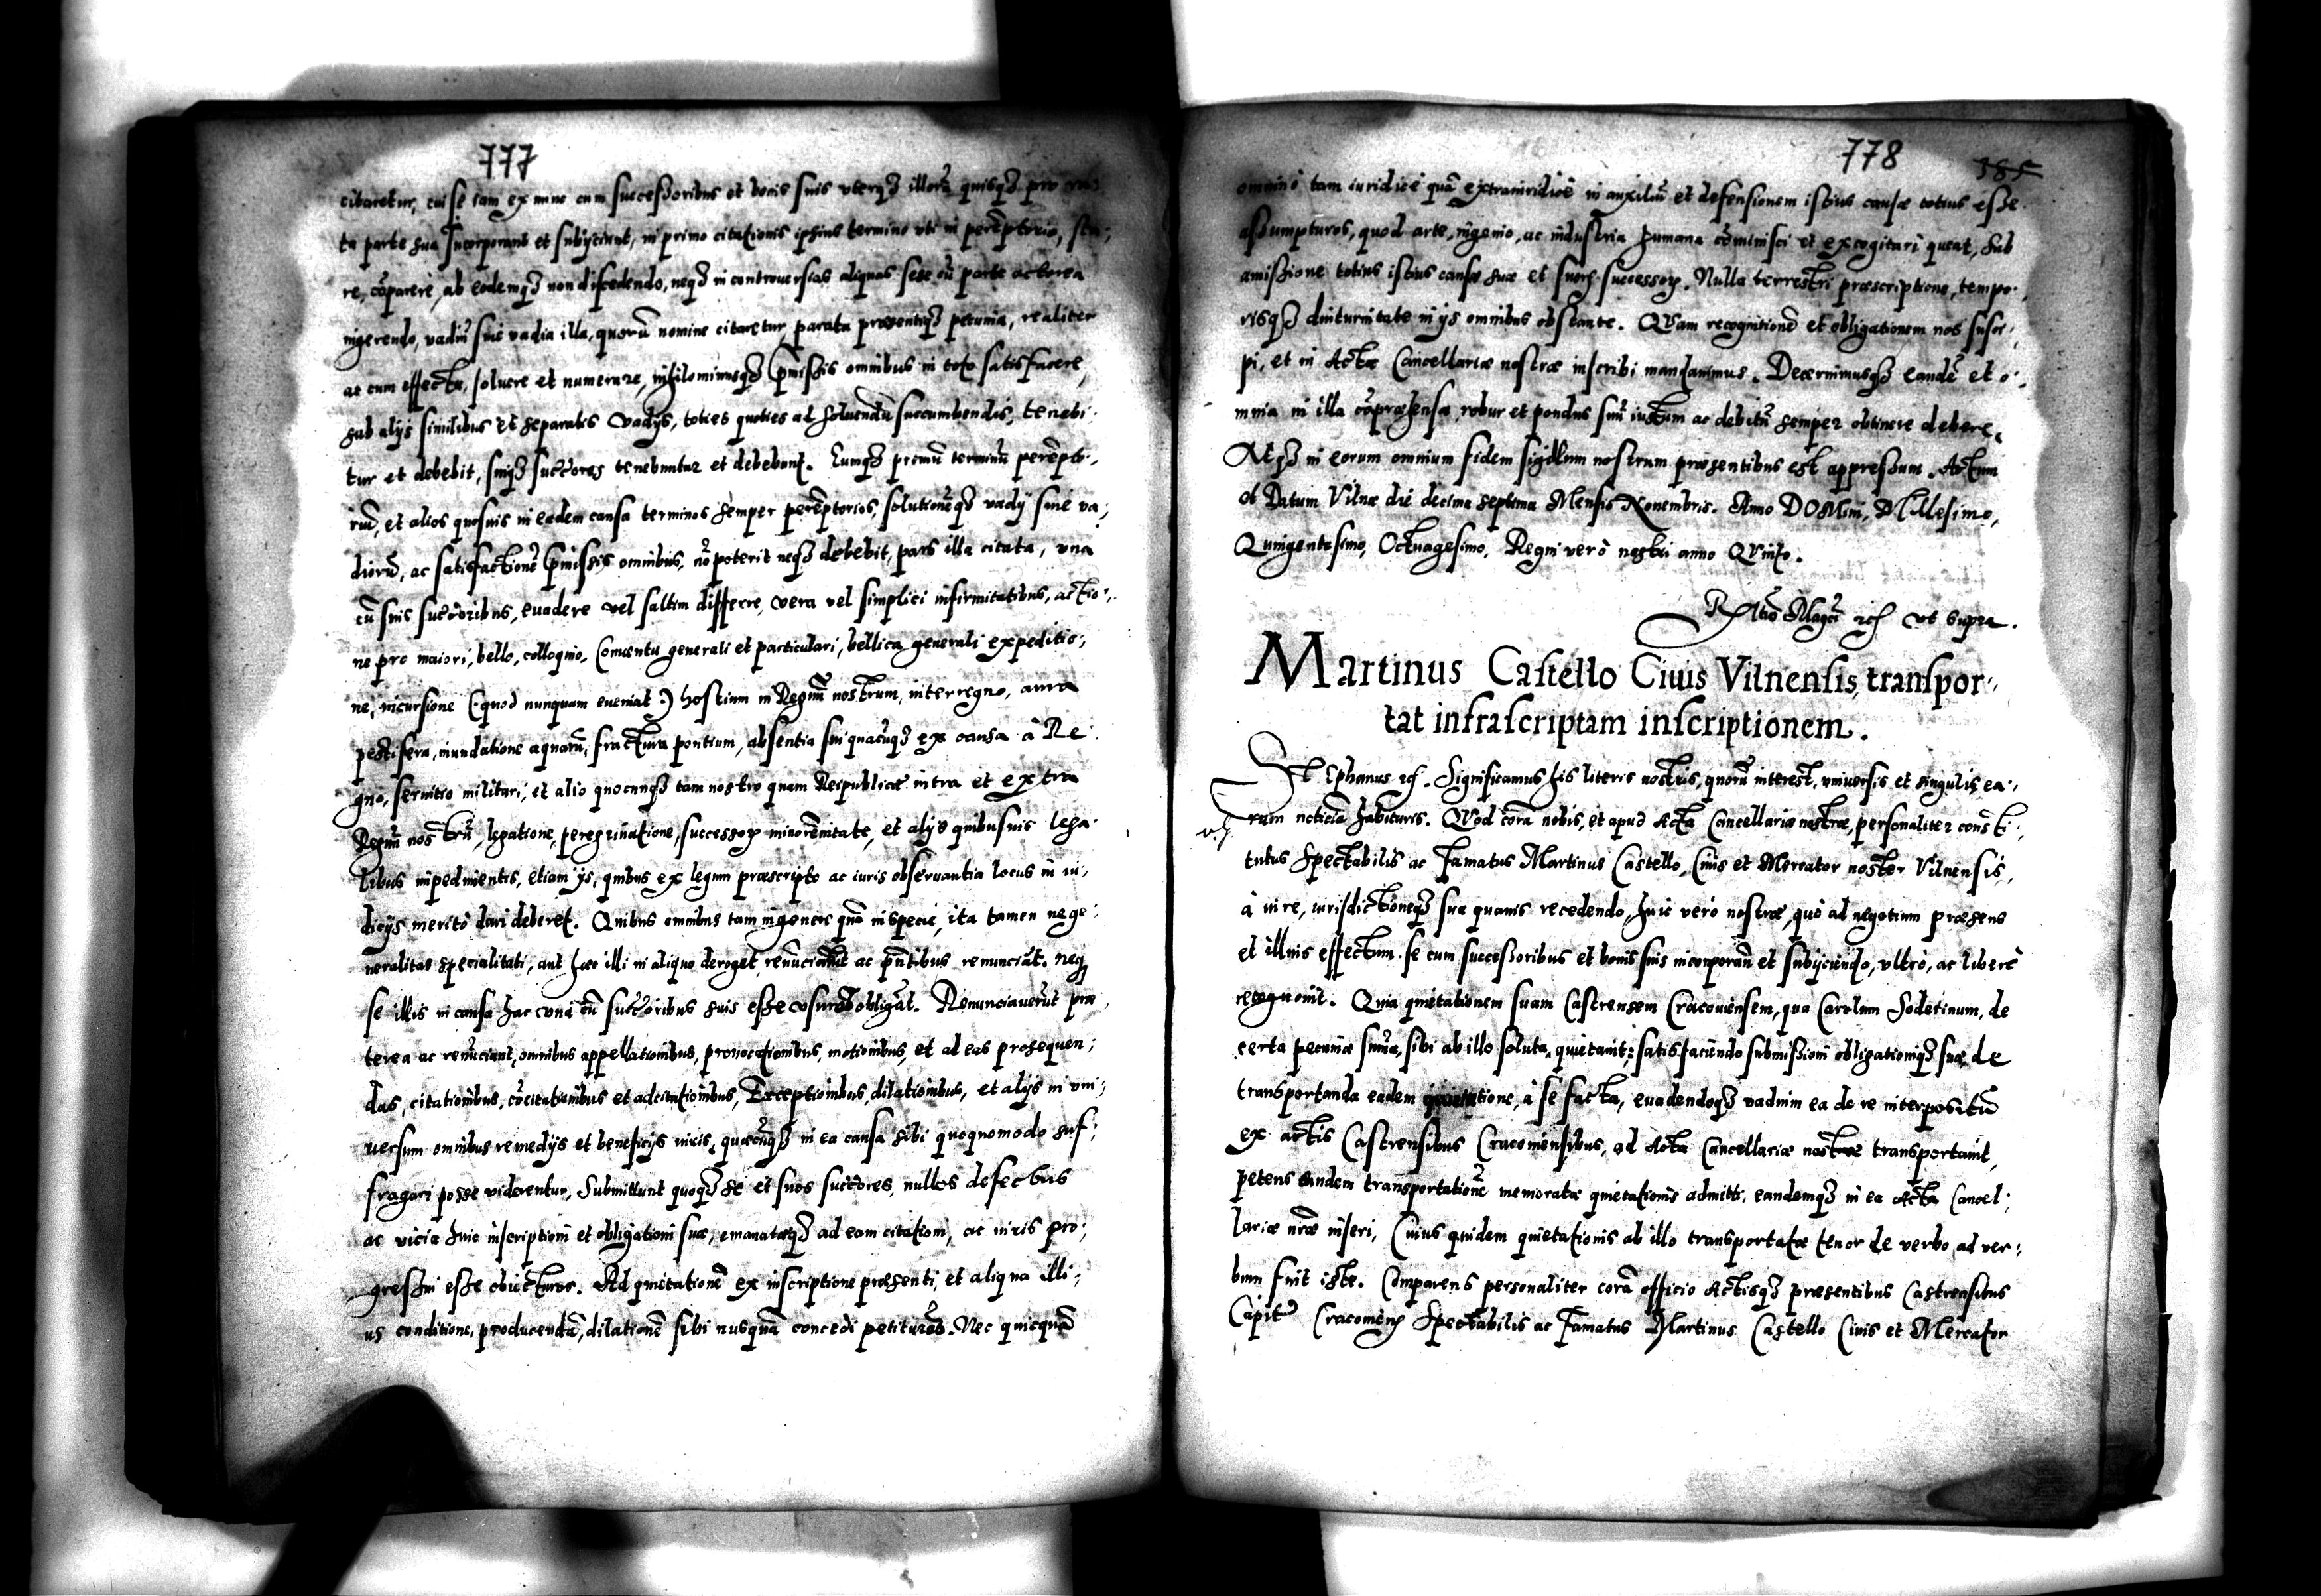 777
citaretur, cui se iam ex nunc cum successoribus et bonis suis uterq3 illorũ quisq3 pro
ta parte sua Incorporant et subÿciunt, in primo citationis ipsius termino uti in perẽptorio, sta,
re, cõparere, ab eodemq3 non discedendo, neq3 in controuersias aliquas sese cũ parte actorea
ingerendo, vadiũ siue vadia illa, quorũ nomine citaretur, parata præsentiq3 pecunia, realiter
ac cum effectu, soluere et numerare, nihilominusq3 p̃missis omnibus in toto satisfacere,
sub alÿs similibus et separatis vadÿs, toties quoties ad soluendũ succumbendis, tenebi,
tur et debebit, suiq3 succ̃ores tenebuntur et debebunt. Eumq3 primũ terminũ perẽpto,
riũ, et alios quosuis in eadem causa terminos semper perẽptorios, solutionẽq3 vadÿ siue va,
diorũ, ac satisfactionẽ p̃missis omnibus, nõ poterit neq3 debebit, pars illa citata, una
cũ suis succ̃oribus, euadere vel saltim differre, vera vel simplici infirmitatibus, actio,
ne pro maiori, bello, colloquio, Conuentu generali et particulari, bellica generali expeditio,
ne, incursione (: quod nunquam eueniat :) hostium in Regnũ nostrum, interregno, aura
pestifera, inundatione aquarũ, fractura pontium, absentia sui quacũq3 ex causa à Re
gno, seruitio militari, et alio quocunq3 tam nostro quam Reipublicæ intra et extra
Regnũ nostrũ, legatione, peregrinatione, successoꝝ minorẽnitate, et alÿs quibusuis lega
libus inpedimentis, etiam ÿs, quibus ex legum præscripto ac iuris obseruantia locus in iu,
dicÿs meritò dari deberet. Quibus omnibus tam in genere quã in specie, ita tamen ne ge,
neralitas specialitati, aut hæc illi in aliquo deroget, renũciant ac p̃ntibus renunciãt. neq
se illis in causa hac unà cũ succ̃oribus suis esse usuros obligãt. Renunciauerũt præ,
terea ac renũciant, omnibus appellationibus, prouocationibus, motionibus, et ad eas prosequen,
das, citationibus, cõcitationibus et adcitationibus, Exceptionibus, dilationibus, et alÿs in uni,
uersum omnibus remedÿs et beneficÿs iuris, quæcũq3 in ea causa sibi quoquomodo suf,
fragari posse viderentur, Submittunt quoq3 se et suos succ̃ores, nullos defectus
ac vicia huic inscriptioni et obligationi suæ, emanatæq3 ad eam citationi, ac iuris pro,
gressui esse obiecturos. Ad quietationẽ ex inscriptione præsenti, et aliqua illi,
us conditione, producendã, dilationẽ sibi nusquã concedi petituros. Nec quicquã
778
385
omnino tam iuridicè quã extraiuridicè in auxiliũ et defensionem istius causæ totius esse
assumpturos, quod arte, ingenio, ac industria humana cõminisci et excogitari queat, sub
amissione totius istius causæ suæ et suoꝝ successoꝝ. Nulla terrestri præscriptione, tempo,
risq3 diuturnitate in ÿs omnibus obstante. Quam recognitionẽ et obligationem nos susce,
pi, et in Acta Cancellariæ nostræ inscribi mandauimus. Decernimusq3 eandẽ et o,
mnia in illa cõpræhensa, robur et pondus suũ iustum ac debitũ semper obtinere debere,
Atq3 in eorum omnium fidem sigillum nostrum præsentibus est appressum. Actum
et Datum Vilnæ die decima septima Mensis Nouembris. Anno DOMini, Millesimo,
Quingentesimo, Octuagesimo, Regni verò nostri anno Quinto.
R̃latio Magci etc ut supra.
Martinus Castello Ciuis Vilnensis, transpor,
tat infrascriptam inscriptionem.
Stephanus etc. Significamus his literis nostris, quorũ interest, uniuersis et singulis ea,
rum noticiã habituris. Quod corã nobis, et apud Acta Cancellariæ nostræ, personaliter consti,
tutus Spectabilis ac Famatus Martinus Castello, Ciuis et Mercator noster Vilnensis,
à iure, iurisdictioneq3 sua quauis recedendo, huic verò nostræ, quò ad negotium præsens
et illius effectum se cum successoribus et bonis suis incorporãn et subÿciendo, ultrò, ac liberè
recognouit. Quia quietationem suam Castrensem Cracouiensem, qua Carolum Soderinum, de
certa pecuniæ sũma, sibi ab illo soluta, quietauit: satisfaciendo submissioni obligationiq3 suæ, de
transportanda eadem quietatione, à se facta, euadendoq3 vadium ea de re interpositũ
ex actis Castrensibus Cracouiensibus, ad Acta Cancellariæ nostræ transportauit,
petens eandem transportationẽ memoratæ quietationis admitti, eandemq3 in ea Acta Cancel,
lariæ nr̃æ inseri, Cuius quidem quietationis ab illo transportatæ tenor de verbo ad ver,
bum fuit iste. Comparens personaliter corã officio Actisq3 præsentibus Castrensibus
Capit̃ Cracouieñ Spectabilis ac Famatus Martinus Castello Ciuis et Mercator